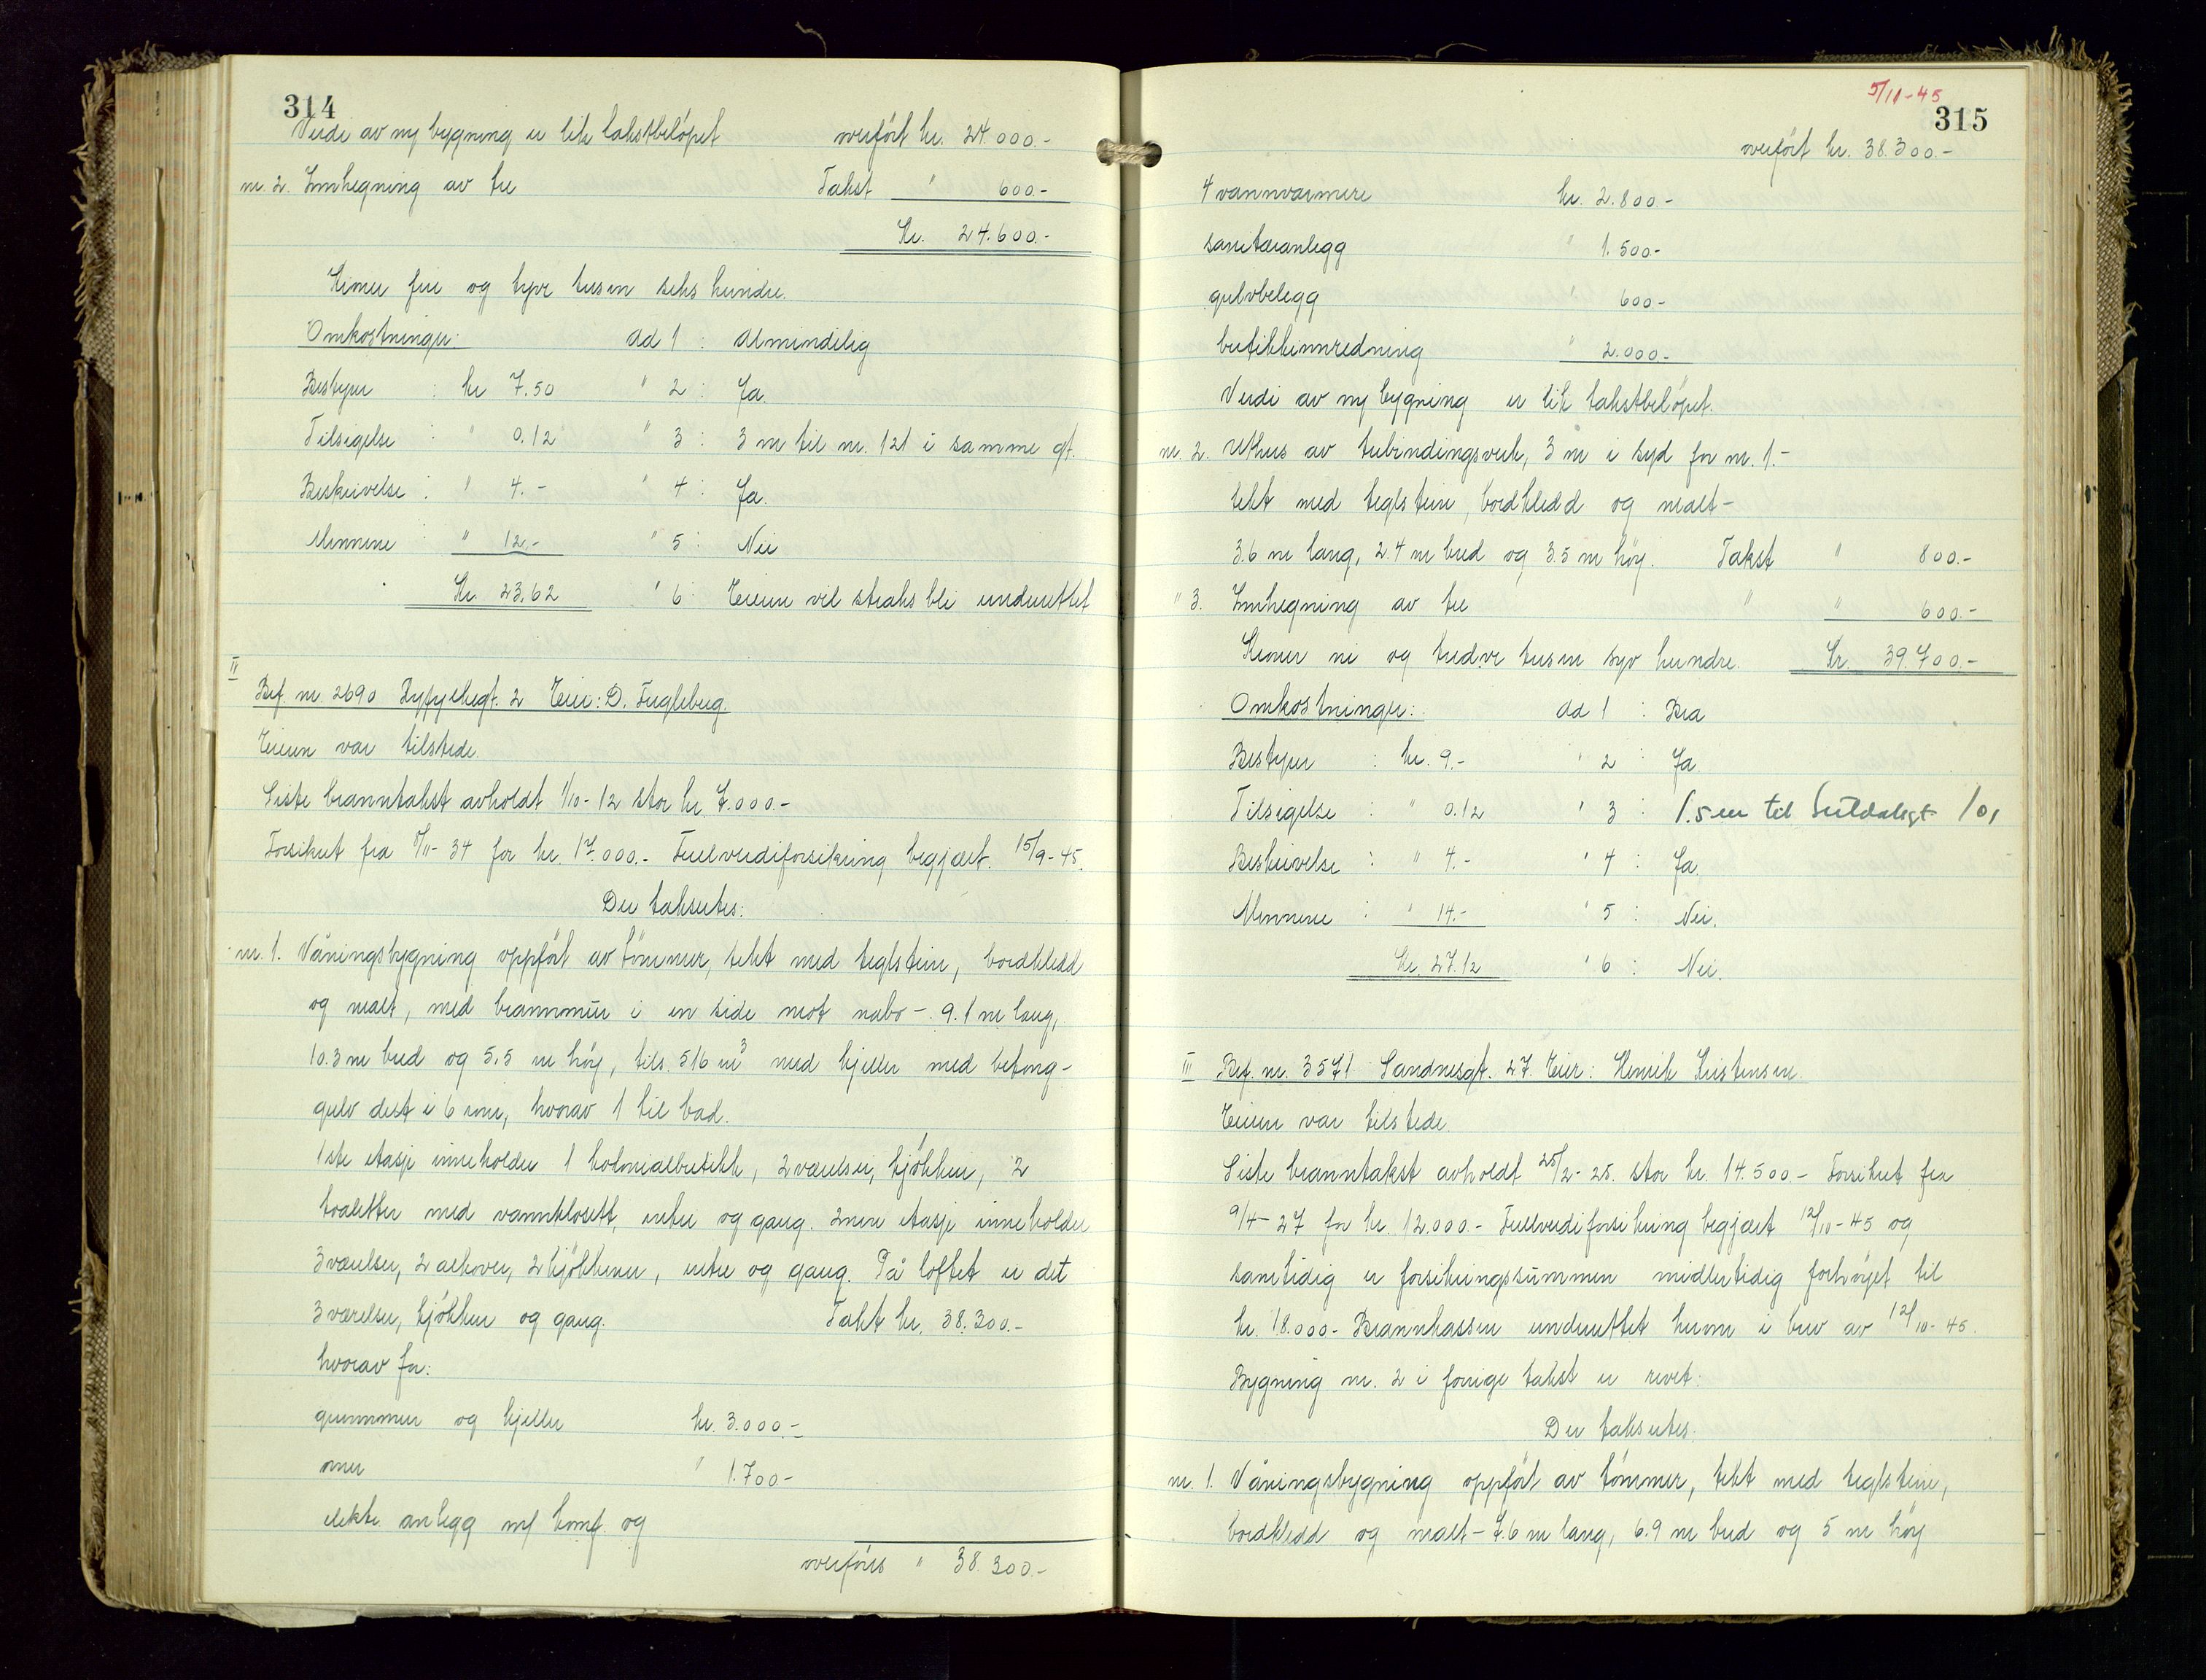 314
Verdi av ny bygning er lik takstbeløpet overført kr. 24.000.-
nr. 2. Innhegning av tre Takst " 600.-
Kr. 24.600.-
Kroner fire og tyve tusen seks hundre.
Omkostninger: ad 1 : Almindelig
Bestyrer : kr 7.50 " 2 : Ja.
Tilsigelse : " 0.12 " 3 : 3 m til nr. 121 i samme gt.
Beskrivelse : " 4.- " 4 : Ja.
Mennene : " 12.- " 5 : Nei
Kr. 23.62 " 6 : Eieren vil straks bli underrettet
II
Brf. nr 2690 2 Eier: D. Fugleberg.
Eieren var tilstede.
Siste branntakst avholdt 1/10-12 stor kr. 7.000.-
Forsikret fra 8/11-34 for kr. 17.000.- Fullverdiforsikring begjært. 15/9-45.
Der takseres:
nr. 1. Våningsbygning oppført av tömmer, tekt med teglstein, bordkledd
og malt, med brannmur i en side mot nabo - 9.1 m lang,
10.3 m bred og 5.5 m høy, tils. 516 m3 med kjeller med betong-
gulv delt i 6 rum, hvorav 1 til bad.
1ste etasje inneholder 1 kolonialbutikk, 2 værelser, kjøkken, 2
toaletter med vannklosett, entre og gang. 2nen etasje inneholder
3 værelser, 2 alkover, 2 kjøkkener, entre og gang. På loftet er det
3 værelser, kjøkken og gang. Takt kr. 38.300.-
hvorav for:
grunnmur og kjeller kr. 3.000.-
ovner " 1.700-
elektr. anlegg m/ komf. og
overføres " 38.300.-
5/11-45
315
overført kr. 38.300.-
4 vannvarmere kr. 2.800.-
sanitæranlegg " 1.500.-
gulvbelegg " 600.-
butikkinnredning " 2.000.-
Verdi av ny bygning er lik takstbeløpet.
nr. 2. Uthus av trebindingsverk, 3 m i syd for nr. 1.-
tekt med teglstein, bordkledd og malt-
3.6 m lang, 2.4 m bred og 3.5 m høy. Takst " 800.-
" 3. Innhegning av tre " " 600.-
Kroner ni og tredve tusen syv hundre. Kr. 39.700.-
Omkostninger: ad 1 : Bra
Bestyrer : kr. 9.- " 2 : Ja.
Tilsigelse : " 0.12 " 3 : 1.5 m til 101
Beskrivelse : " 4.- " 4 : Ja.
Mennene : " 14.- " 5 : Nei.
Kr. 27.12 " 6 : Nei.
III Brf. nr. 3571 Sandnesgt. 27. Eier: Henrik Kristensen.
Eieren var tilstede.
Siste branntakst avholdt 25/2-25. stor kr. 14.500.- Forsikret fra
9/4-27 for kr. 12.000.- Fullverdiforsikring begjært 12/10-45 og
samtidig er forsikringssummen midlertidig forhøyet til
kr. 18.000.- Brannkassen underrettet herom i brev av 12/10-45.
Bygning nr. 2 i forrige takst er revet.
Der takseres:
nr. 1. Våningsbygning oppført av tömmer, tekt med teglstein,
bordkledd og malt - 7.6 m lang, 6.9 m bred og 5 m høy